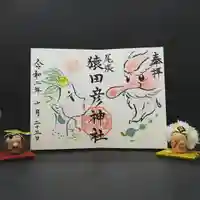 奉拝
尾張
猿田彦神社
令和二年十月二十三日